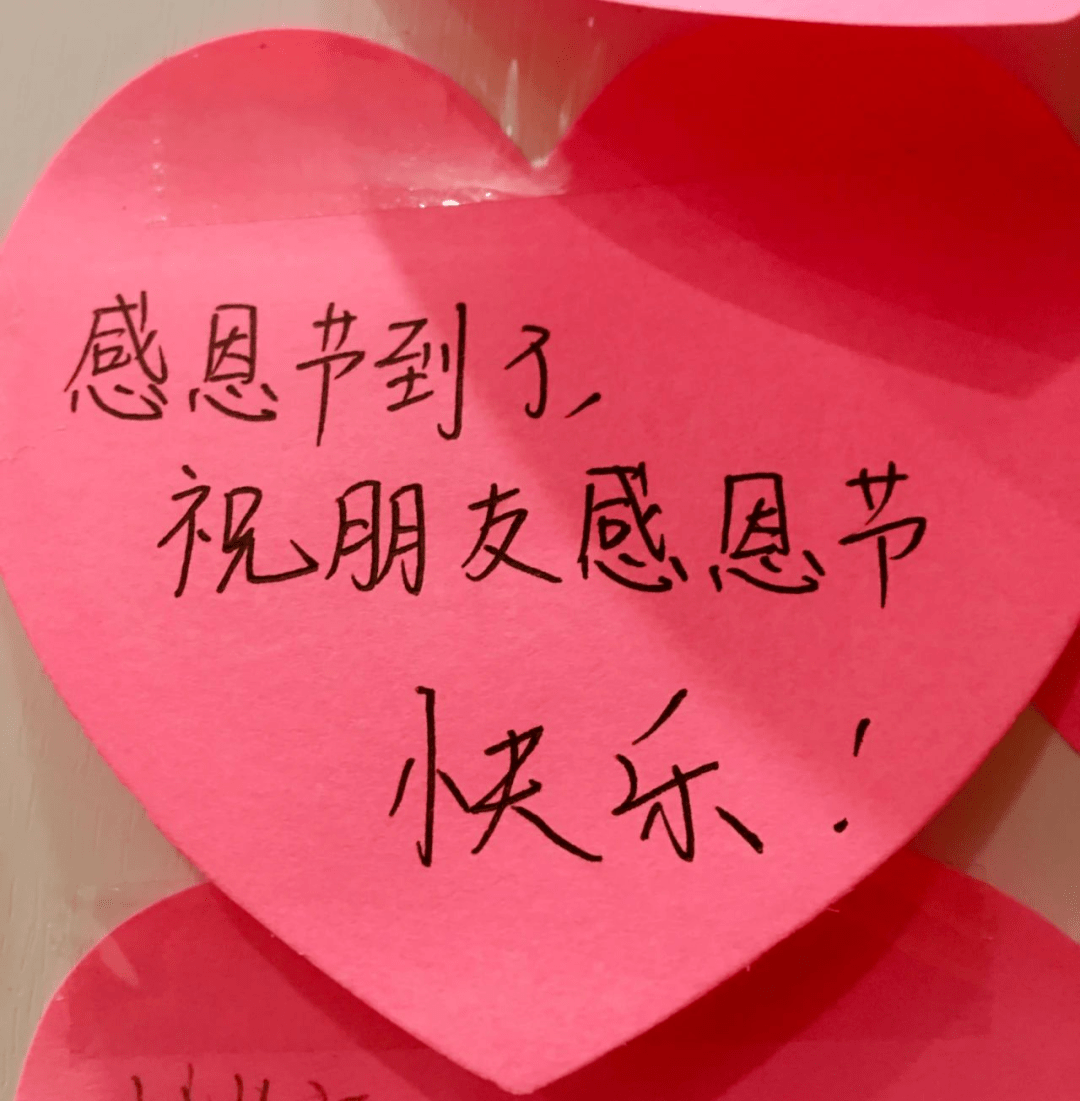 感恩节到了,
祝朋友感恩节
快乐!